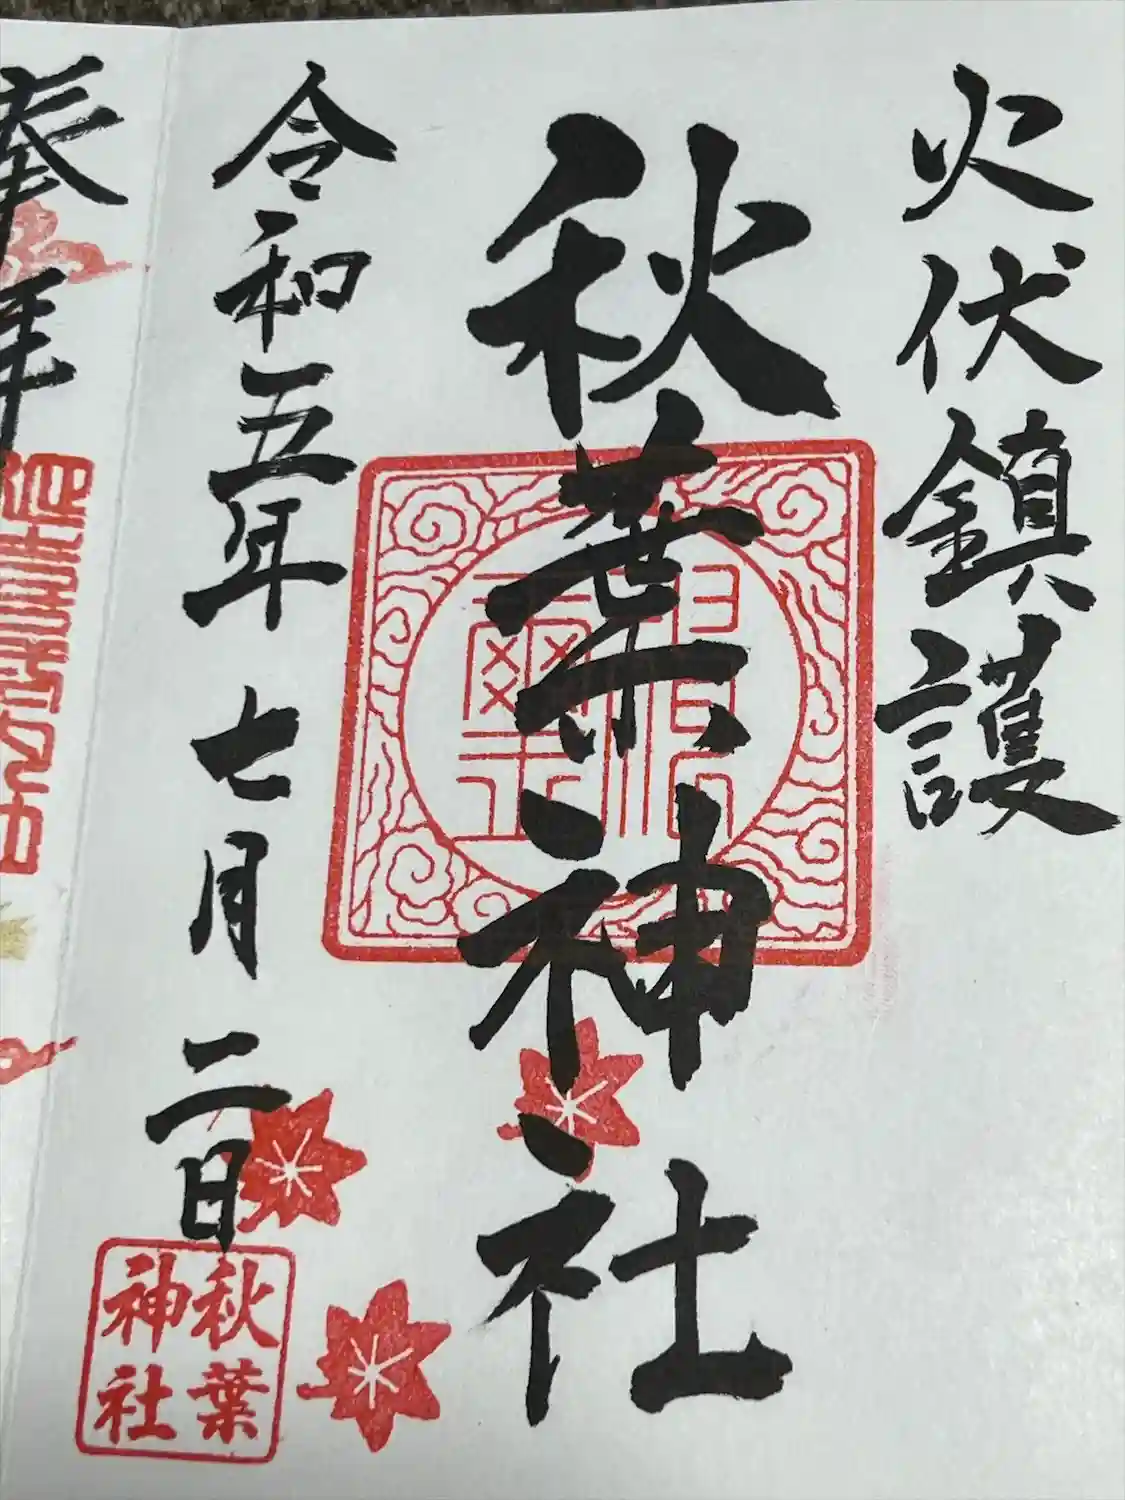 火伏鎮護
秋葉神社
令和五年七月二日
秋葉
神社
奉拝